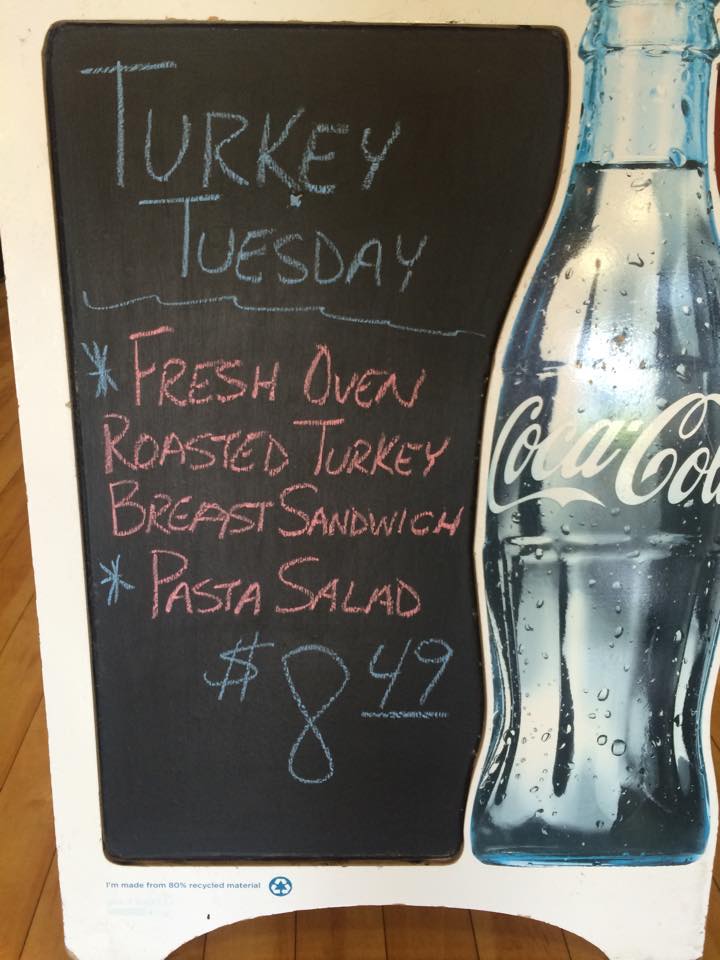 TURKEY
TUESDAY
* FRESH OVEN
ROASTED TURKEY
BREAST SANDWICH
* PASTA SALAD
$8.49
Coca-Col
I'm made from 80% recycled material